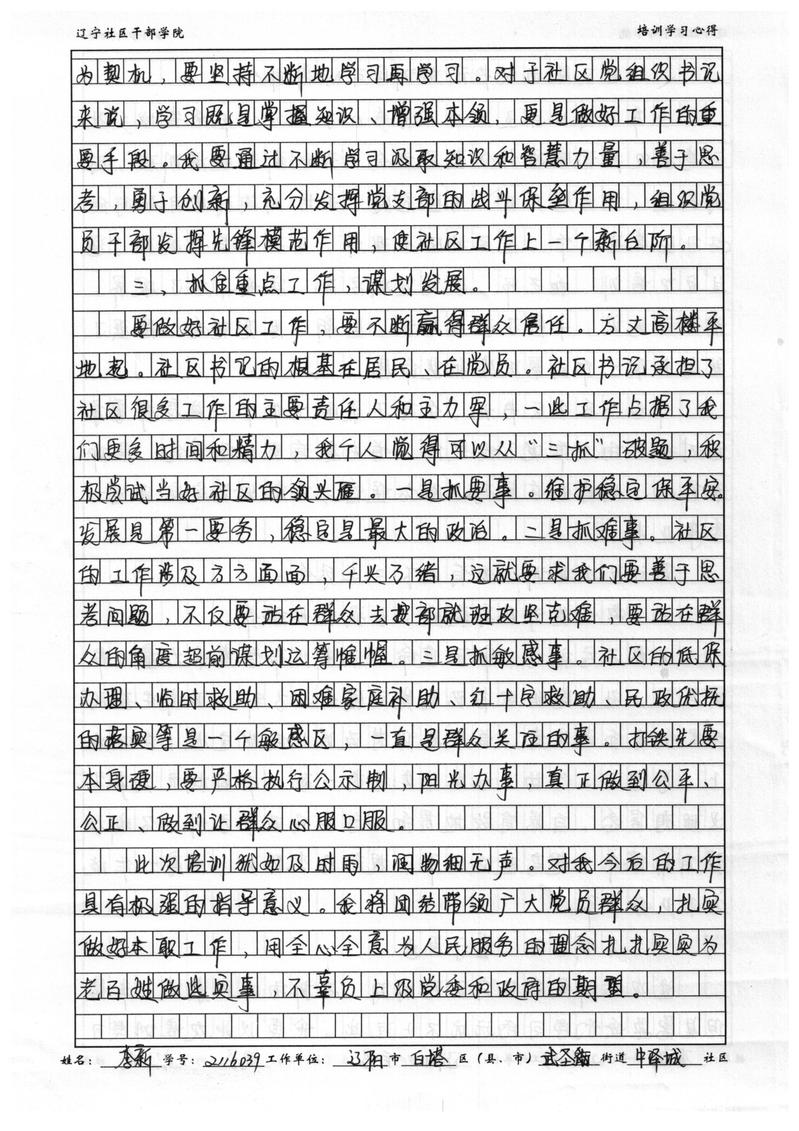 辽宁社区干部学院 培训学习心得
为契机，要坚持不断地学习再学习。对于社区党组织书记
来说，学习既是掌握知识、增强本领，更是做好工作的重
要手段。我要通过不断学习汲取知识和智慧力量，善于思
考，勇于创新，充分发挥党支部的战斗保垒作用，组织党
员干部发挥先锋模范作用，使社区工作上一个新台阶。
三、抓住重点工作，谋划发展。
要做好社区工作，要不断赢得群众信任。万丈高楼平
地起。社区书记的根基在居民，在党员。社区书记承担了
社区很多工作的主要责任人和主力军，一些工作占据了我
们更多时间和精力，我个人觉得可以从“三抓”破题，积
极尝试当好社区的领头雁。一是抓要事。维护稳定保平安
发展是第一要务，稳定是最大的政治。二是抓难事。社区
的工作涉及方方面面，千头万绪，这就要求我们要善于思
考问题，不仅要站在群众去搜部就班攻坚克难，要站在群
众的角度超前谋划运筹帷幄。三是抓敏感事。社区的低保
办理、临时救助、困难家庭补助、红十字救助、民政优抚
的落实等是一个敏感区，一直是群众关注的事。打铁先要
本身硬，要严格执行公示制，阳光办事，真正做到公平、
公正、做到让群众心服口服。
此次培训犹如及时雨，润物细无声。对我今后的工作
具有极强的指导意义。我将团结带领广大党员群众，扎实
做好本职工作，用全心全意为人民服务的理念扎扎实实为
老百姓做些实事，不辜负上级党委和政府的期望。
姓名：李新 学号：2116039 工作单位：辽阳市 白塔 区（县、市）武圣 街道 中泽城 社区